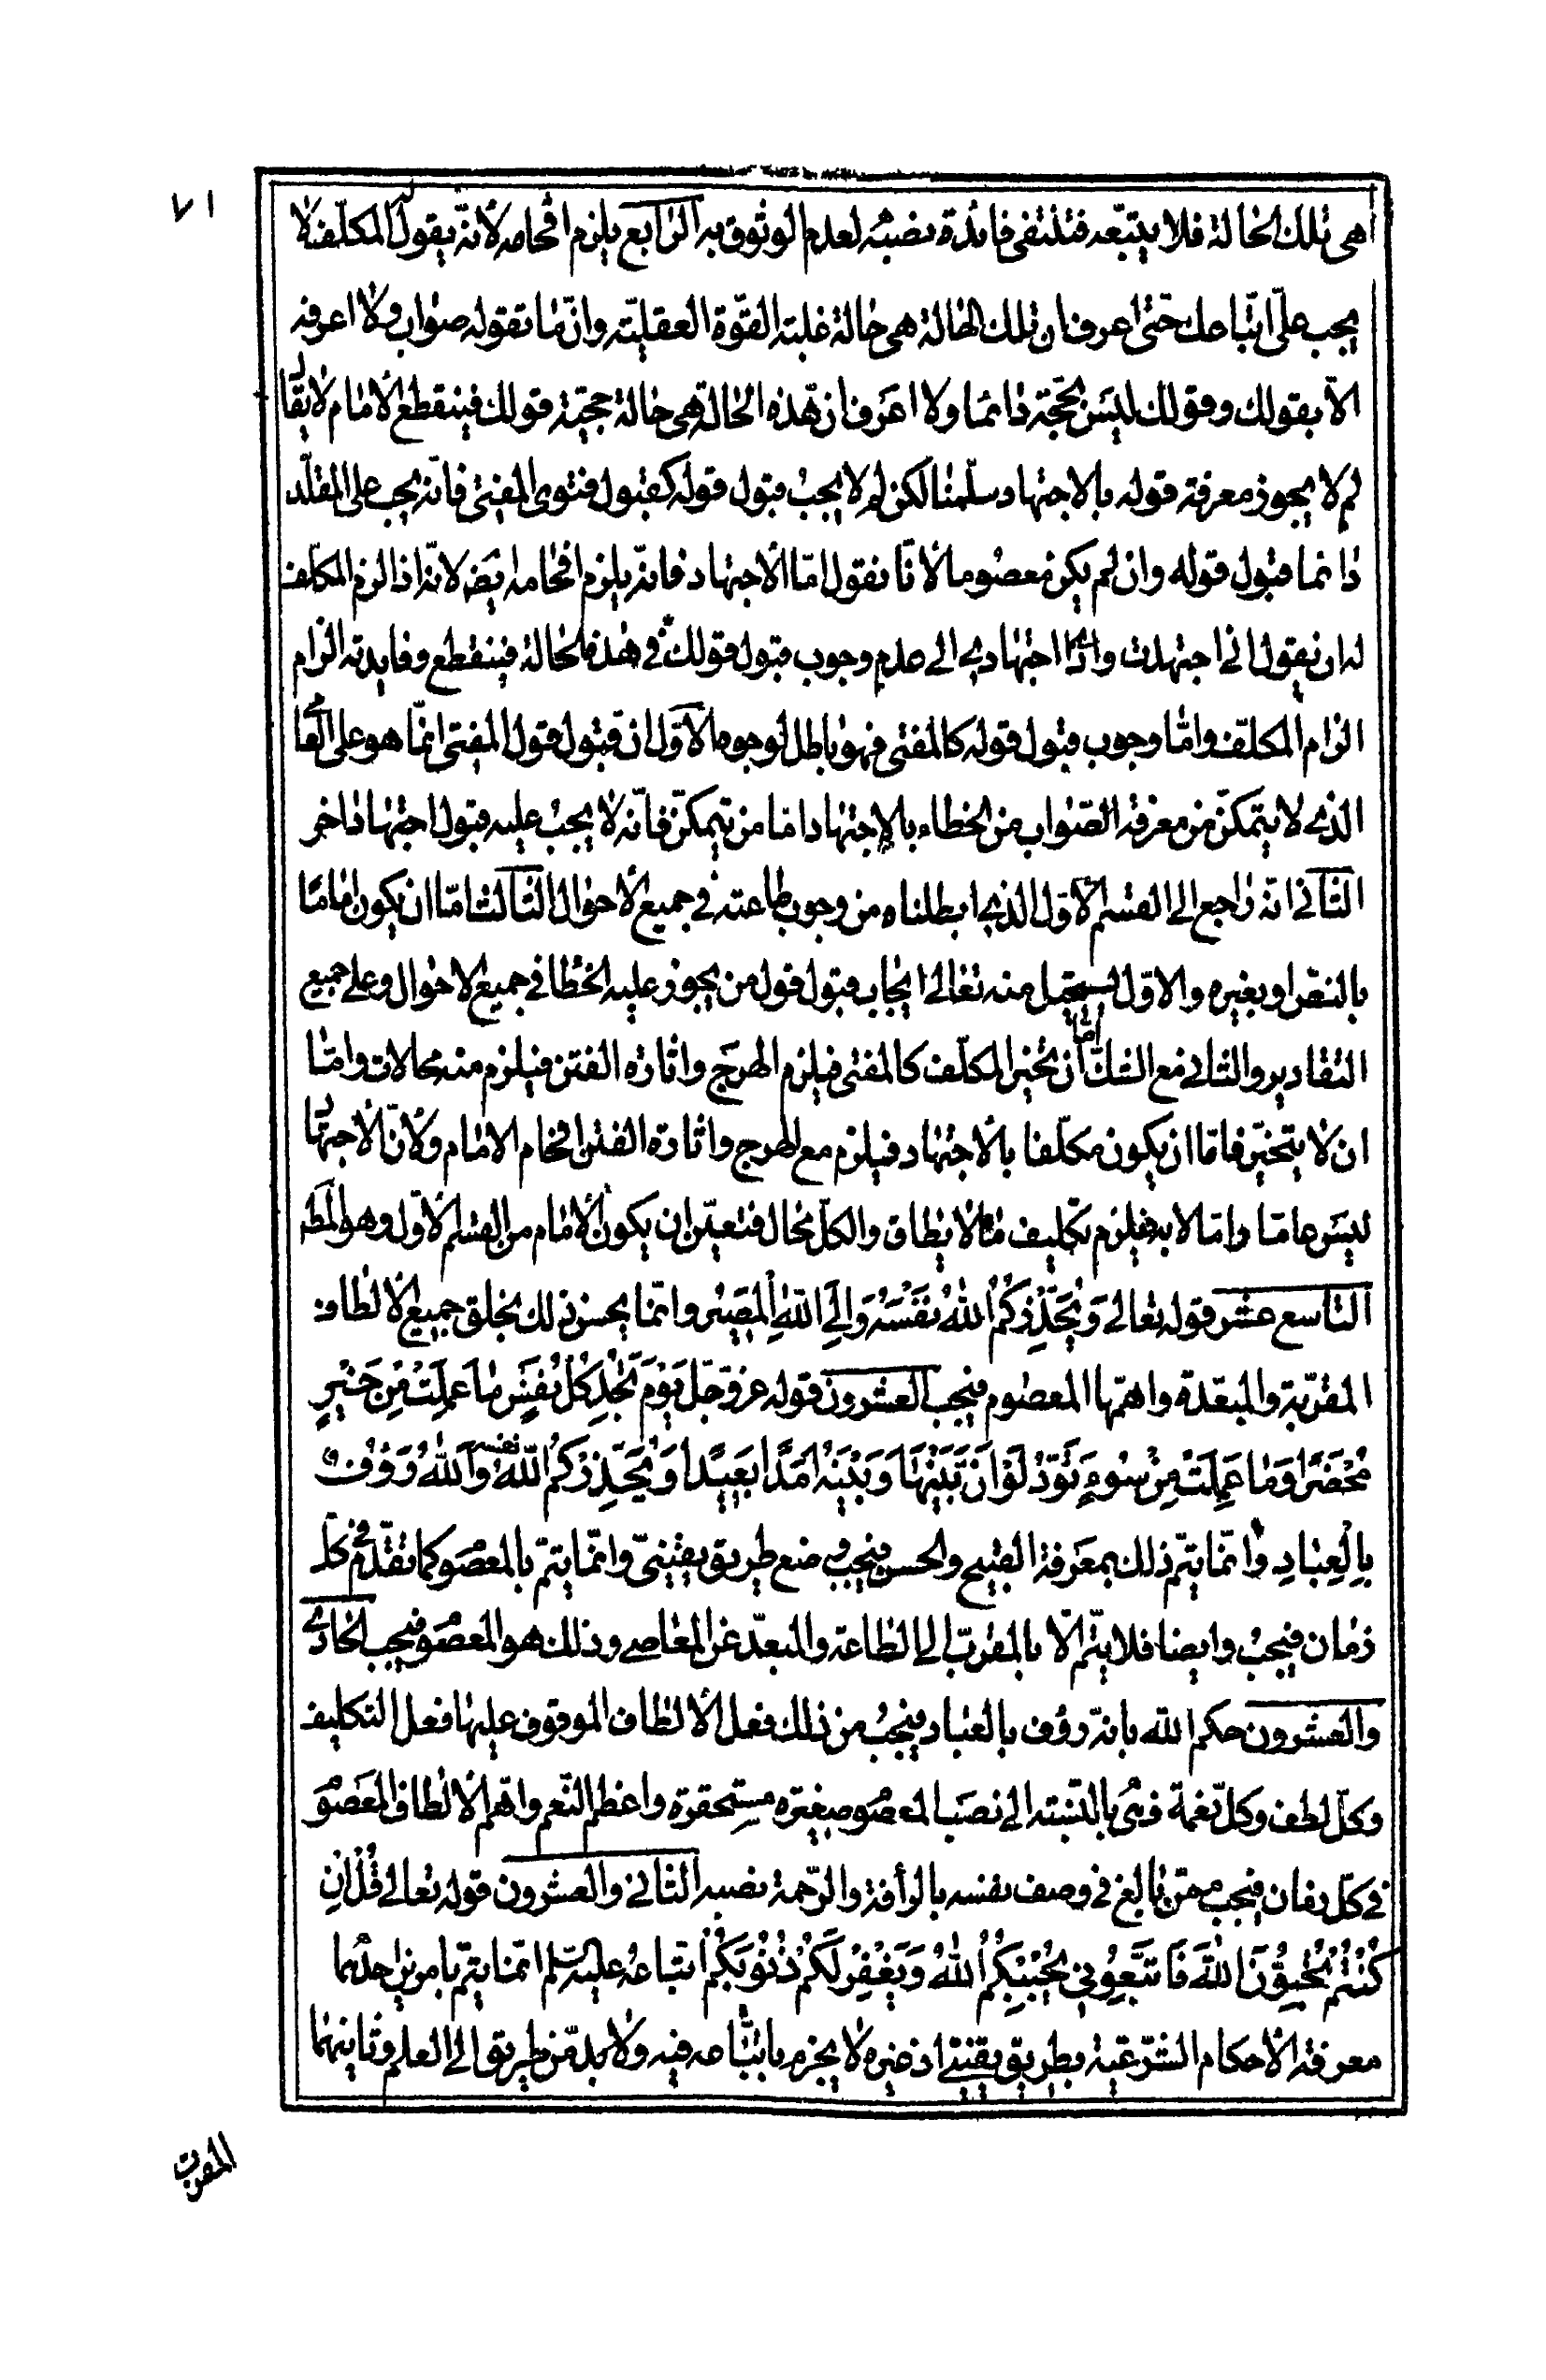 ٧١
هى تلك الحالة فلا يتبعه فتنتفى فائدة نصبه لعدم الوثوق به الرابع يلزم افحامه لانه يقول المكلف لا
يجب علىّ اتباعك حتى اعرف ان تلك الحالة هى حالة غلبة القوة العقلية وان ما تقوله صواب ولا اعرفه
الا بقولك وقولك ليس بحجة دائما ولا اعرف ان هذه الحالة هى حالة حجية قولك فينقطع الامام لا يقال
لم لا يجوز معرفة قوله بالاجتهاد سلمنا لكن لم لا يجب قبول قوله كقبول فتوى المفتى فانه يجب على المقلد
دائما قبول قوله وان لم يكن معصوما لانا نقول اما الاجتهاد فانه يلزم افحامه ايض لانه اذا الزم المكلف
له ان يقول انى اجتهدت واد اجتهادى الى عدم وجوب قبول قولك فى هذه الحالة فينقطع وفايدته الزام
الزام المكلف واما وجوب قبول قوله كالمفتى فهو باطل لوجوه الاول ان قبول قول المفتى انما هو على العامى
الذى لا يتمكن من معرفة الصواب من الخطاء بالاجتهاد اما من يتمكن فانه لا يجب عليه قبول اجتهاد اخر
الثانى انه راجع الى القسم الاول الذى ابطلناه من وجوب طاعته فى جميع الاحوال الثالث اما ان يكون اماما
بالنص او بغيره والاول يستحيل منه تعالى ايجاب قبول قول من يجوز عليه الخطا فى جميع الاحوال وعلى جميع
التقادير والثانى مع الشك اما ان تخير المكلف كالمفتى فيلزم الهرج واثارة الفتن فيلزم منه محالات واما
ان لا يتخير فاما ان يكون مكلفا بالاجتهاد فيلزم مع الهرج واثارة الفتن افحام الامام ولان الاجتهاد
ليس عاما واما لا به فيلزم تكليف ما لا يطاق والكل محال فتعين ان يكون الامام من القسم الاول وهو المط
التاسع عشر قوله تعالى وَيُحَذِّرُكُمُ اللهُ نَفْسَهُ وَاِلَى اللهِ الْمَصِيْر وانما يحسن ذلك بخلق جميع الالطاف
المقربة والمبعدة واهمها المعصوم فيجب العشرون قوله عز وجل يَوْمَ تَجِدُ كُلُّ نَفْسٍ مٰا عَمِلَتْ مِنْ خَيْرٍ
مُحْضَرًا وَمٰا عَمِلَتْ مِنْ سُوءٍ تَوَدُّ لَوْ اَنَّ بَيْنَهٰا وَبَيْنَهُ اَمَدًا بَعِيْدًا وَيُحَذِّرُكُمُ اللهُ نفسه وَاللهُ رَؤُفٌ
بِالْعِبٰادِ وانما يتم ذلك بمعرفة القبيح والحسن فيجب وضع طريق يقينى وانما يتم بالمعصو كما تقدم فى كل
زمان فيجب وايضا فلا يتم الا بالمقرب الى الطاعة والمبعد عن المعاصى وذلك هو المعصو فيجب الحادى
والعشرون حكم الله بانه رؤف بالعباد فيجب من ذلك فعل الالطاف الموقوف عليها فعل التكليف
وكل لطف وكل نعمة فهى بالنسبة الى نصب المعصو صغيره مستحقرة واعظم النعم واهم الالطاف المعصو
فى كل زمان فيجب ممن بالغ فى وصف نفسه بالرأفة والرحمة نصبه الثانى والعشرون قوله تعالى قُلْ اِنْ
كُنْتُمْ تُحِبُّوْنَ اللهَ فَاتَّبِعُوْنِى يُحْبِبْكُمُ اللهُ وَيَغْفِرْ لَكُمْ ذُنُوْبَكُمْ اتباعه عليه السلم انما يتم بامرين احدهما
معرفة الاحكام الشرعية بطريق يقينى اذ غيره لا يجزم باتباعه فيه ولا بد من طريق الى العلم وثانيهما
المقرب